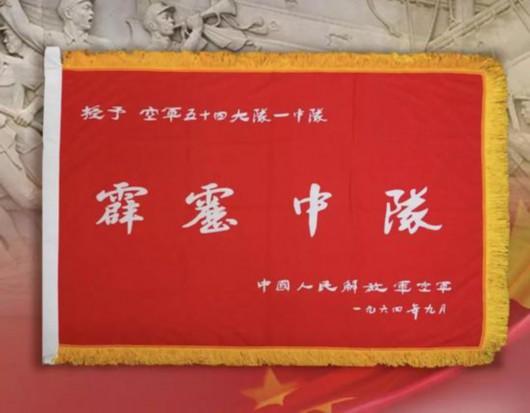 授予 空軍五十四大隊一中隊
霹靂中隊
中國人民解放軍空軍
一九六四年九月